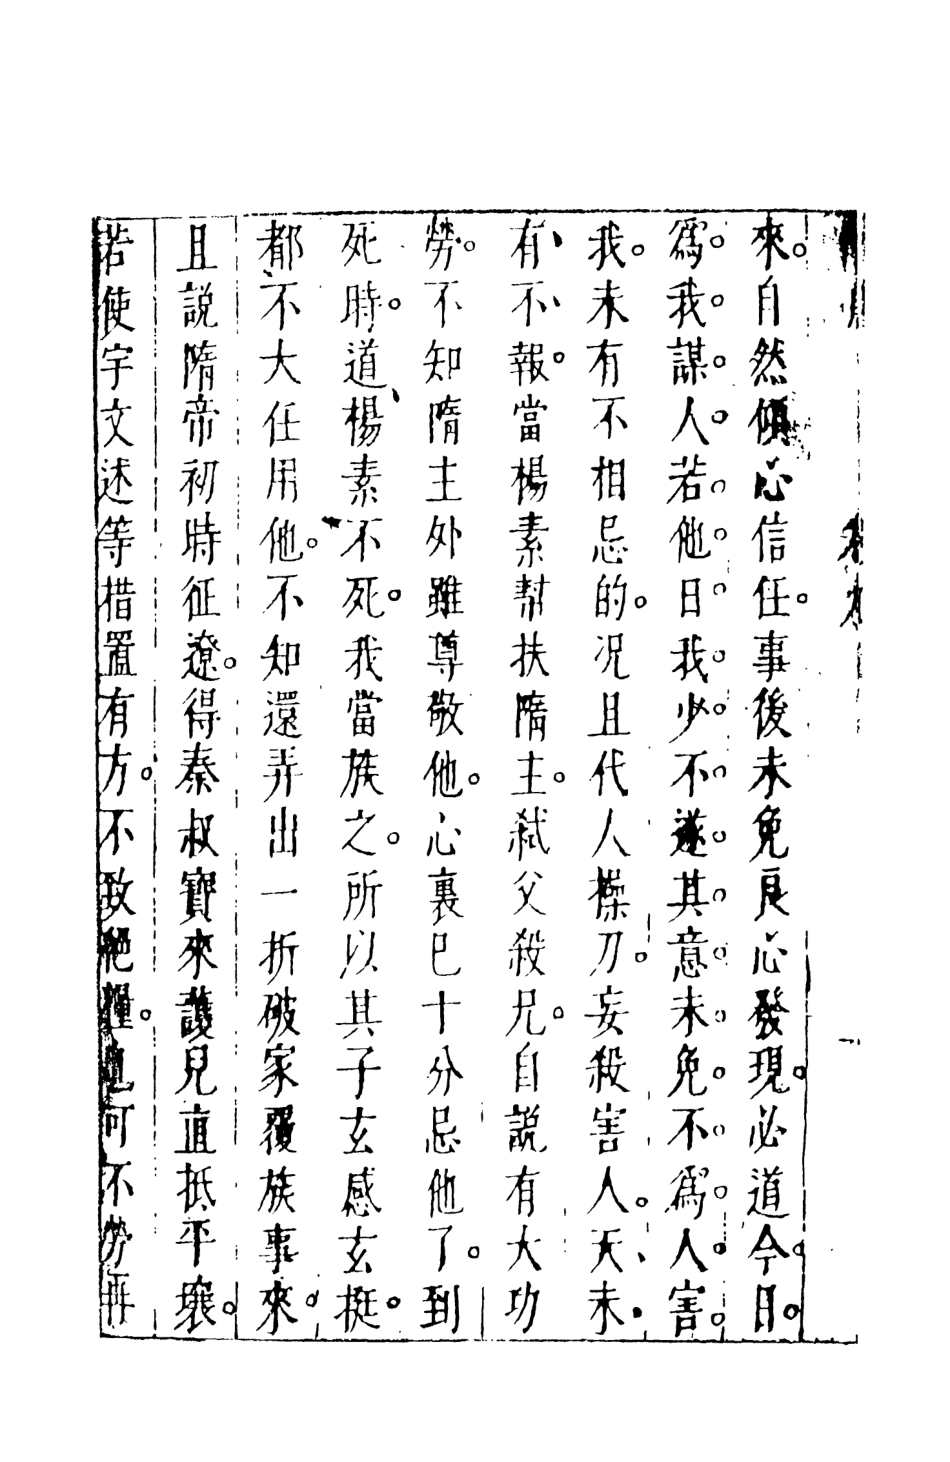 來。自然傾心信任。事後未免良心發現。必道今日。
爲。我。謀。人。若。他。日。我。少。不。遂。其。意。未。免。不。爲。人。害。
我。未有不相忌的。况且代人操刀。妄殺害人。天、未、
有、不、報。當楊素幫扶隋主。弑父殺兄。自說有大功
勞。不知隋主外雖尊敬他。心裏已十分忌他了。到
死時。道、楊素不死。我當族之。所以其子玄感玄挺。
都、不大任用他。不知還弄出一折破家覆族事來。
且說隋帝初時征遼。得秦叔寶來護兒直抵平壤。
若使宇文述等措置有方。不致絕糧。也可不勞再